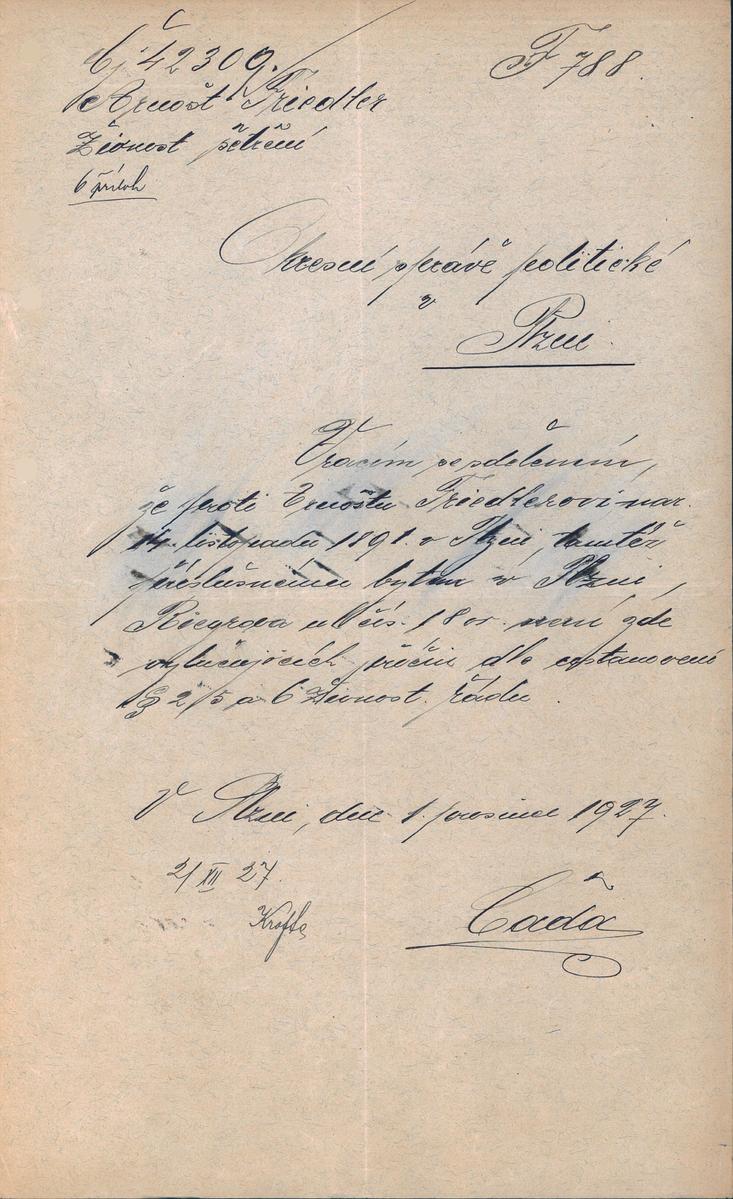 Čj 42309. F 788.
Arnošt Friedler
Živnost šetření
6 příloh
Okresní správě politické
v
Plzni.
Vracím se sdělením,
že proti Ernoštu Friedlerovi nar.
14. listopadu 1891. v Plzni, tamtéž
příslušnému bytem v Plzni,
Riegrova ul čís. 18 or. není zde
vylučujících příčin dle ustanovení
§ 2/5 a 6 Živnost. řádu.
V Plzni, dne 1. prosince 1927.
2/XII 27.
Krofta
Čada